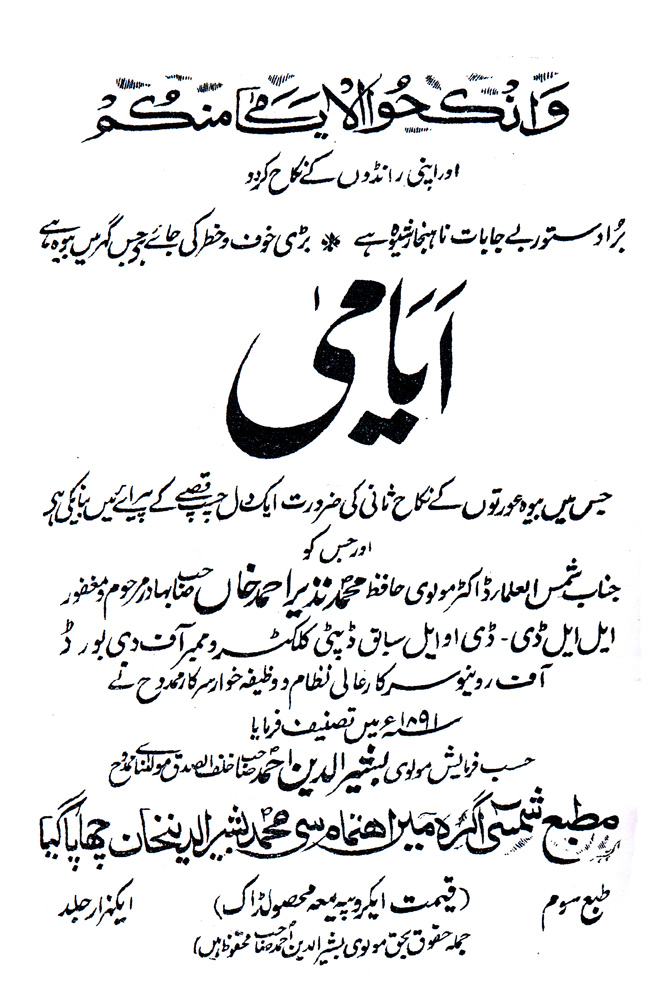 وَانْكِحُوا الْاَیَامٰی مِنْکُمْ
اور اپنی رانڈوں کے نکاح کردو
بُرا دستور بے جا بات ناہنجار شیوہ ہے ٭ بڑی خوف و خطر کی جائے ہے جس گھر میں بیوہ ہے
اَیَامیٰ
جس میں بیوہ عورتوں کے نکاح ثانی کی ضرورت ایک دل چسپ قصے کے پیرائے میں بیان کی ہے
اور جس کو
جناب شمس العلماء ڈاکٹر مولوی حافظ محمد نذیر احمد خاں صاحب بہادر مرحوم و مغفور
ایل ایل ڈی - ڈی او ایل سابق ڈپٹی کلکٹر و ممبر آف دی بورڈ
آف روینیو سرکار عالی نظام و وظیفہ خوار سرکار ممدوح نے
سنہ ۱۸۹۱ء میں تصنیف فرمایا
حسب فرمایش مولوی بشیر الدین احمد صاحب خلف الصدق مولٰنائے ممدوح
مطبع شمسی آگرہ میں محمد بشیر الدین خان چھاپا گیا
طبع سوم (قیمت ایکروپیہ معہ محصولڈاک) ایکہزار جلد
جملہ حقوق بحق مولوی بشیر الدین احمد صاحب محفوظ ہیں)